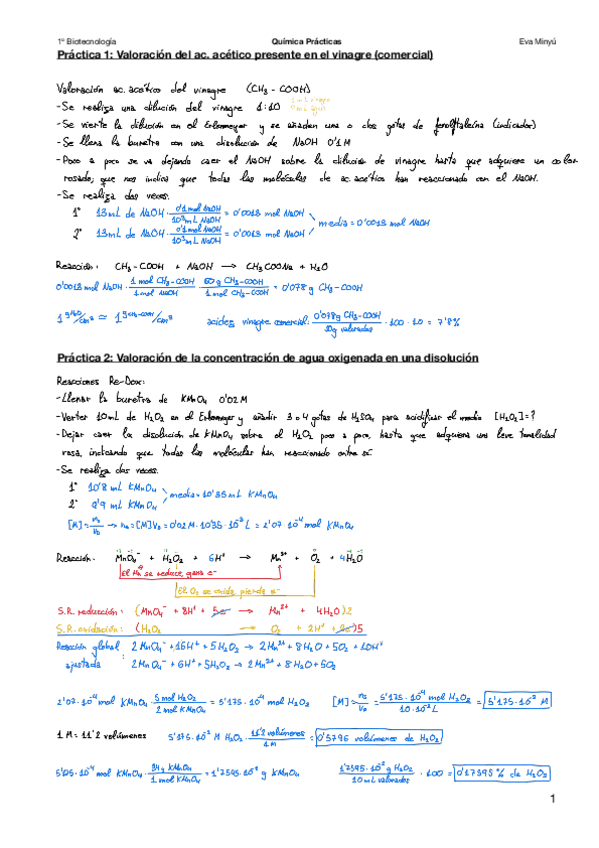 1º Biotecnología Química Prácticas Eva Minyú
Práctica 1: Valoración del ac. acético presente en el vinagre (comercial)
Valoración ac. acético del vinagre (CH3 - COOH)
- Se realiza una dilución del vinagre 1:10
- Se vierte la dilución en el Erlenmeyer y se añaden una o dos gotas de fenolftaleína (indicador)
- Se llena la bureta con una disolución de NaOH 0'1M
- Poco a poco se va dejando caer el NaOH sobre la dilución de vinagre hasta que adquiere un color
rosado, que nos indica que todas las moléculas de ac. acético han reaccionado con el NaOH.
- Se realiza dos veces.
1º 13mL de NaOH · 0'1 mol NaOH / 10³ mL NaOH = 0'0013 mol NaOH
2º 13mL de NaOH · 0'1 mol NaOH / 10³ mL NaOH = 0'0013 mol NaOH
media = 0'0013 mol NaOH
Reacción: CH3 - COOH + NaOH → CH3COONa + H2O
0'0013 mol NaOH · 1 mol CH3-COOH / 1 mol NaOH · 60 g CH3-COOH / 1 mol CH3-COOH = 0'078 g CH3-COOH
1 g H2O/cm³ ≈ 1 g CH3-COOH/cm³ acidez vinagre comercial: 0'078g CH3-COOH / 10g valorados · 100 · 10 = 7'8%
Práctica 2: Valoración de la concentración de agua oxigenada en una disolución
Reacciones Re-Dox:
- Llenar la bureta de KMnO4 0'02M
- Verter 10mL de H2O2 en el Erlenmeyer y añadir 3 o 4 gotas de H2SO4 para acidificar el medio [H2O2]=?
- Dejar caer la disolución de KMnO4 sobre el H2O2 poco a poco, hasta que adquiera una leve tonalidad
rosa, indicando que todas las moléculas han reaccionado entre sí
- Se realiza dos veces.
1º 10'8 mL KMnO4
2º 9'9 mL KMnO4
media = 10'35 mL KMnO4
[M] = ns/VD → ns = [M]VD = 0'02M · 10'35 · 10⁻³ L = 2'07 · 10⁻⁴ mol KMnO4
Reacción: MnO4⁻ + H2O2 + 6H⁺ → Mn²⁺ + O2 + 4H2O
El Mn se reduce, gana e⁻
El O2 se oxida, pierde e⁻
S.R. reducción: (MnO4⁻ + 8H⁺ + 5e⁻ → Mn²⁺ + 4H2O)2
S.R. oxidación: (H2O2 → O2 + 2H⁺ + 2e⁻)5
Reacción global 2MnO4⁻ + 16H⁺ + 5H2O2 → 2Mn²⁺ + 8H2O + 5O2 + 10H⁺
ajustada : 2MnO4⁻ + 6H⁺ + 5H2O2 → 2Mn²⁺ + 8H2O + 5O2
2'07 · 10⁻⁴ mol KMnO4 · 5 mol H2O2 / 2 mol KMnO4 = 5'175 · 10⁻⁴ mol H2O2 [M] = ns/VD = 5'175 · 10⁻⁴ mol H2O2 / 10 · 10⁻³ L = 5'175 · 10⁻² M
1 M = 11'2 volúmenes 5'175 · 10⁻² M H2O2 · 11'2 volúmenes / 1 M = 0'5796 volúmenes de H2O2
5'175 · 10⁻⁴ mol KMnO4 · 34 g KMnO4 / 1 mol KMnO4 = 1'7595 · 10⁻² g KMnO4 1'7595 · 10⁻² g H2O2 / 10 mL valorados · 100 = 0'17595 % de H2O2
1